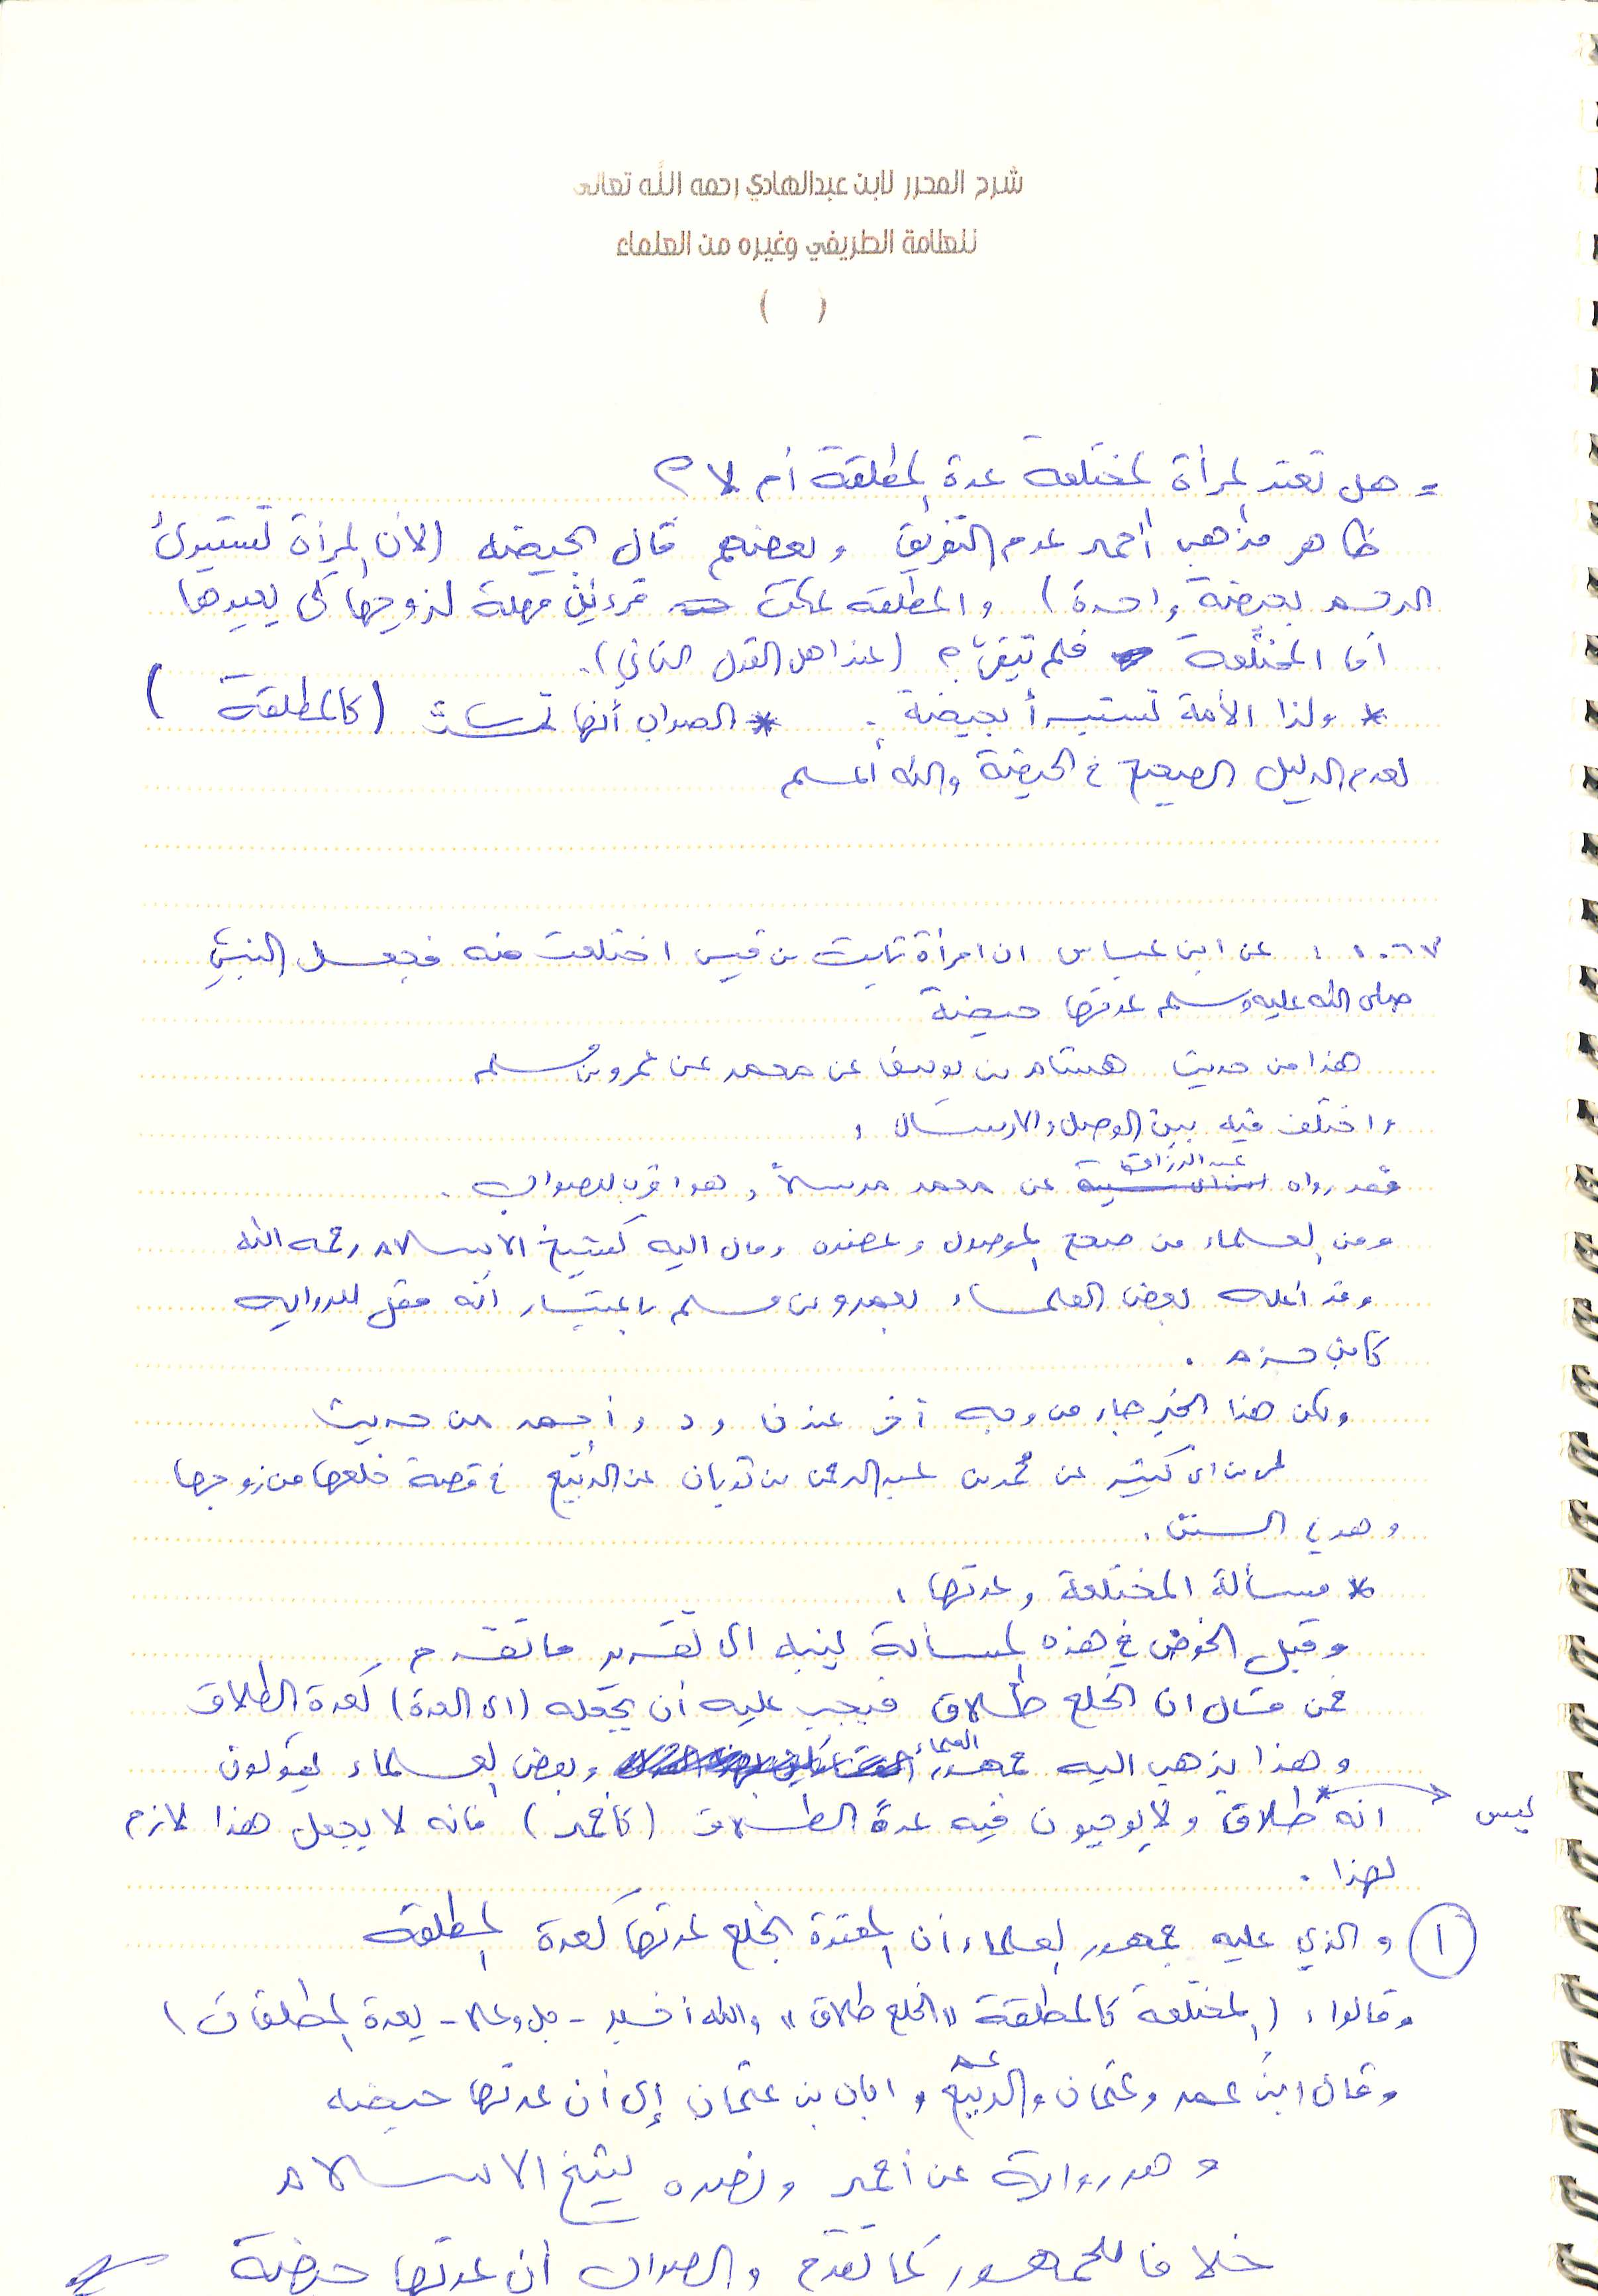 شرح المحرر لابن عبدالهادي رحمه الله تعالى
للعلامة الطريفي وغيره من العلماء
( )
= هل تعتد المرأة المختلعة عدة المطلقة أم لا ؟
ظاهر مذهب أحمد عدم التفريق وبعضهم قال بحيضه (لأن المرأة تستبرئ
الرحم بحيضة واحدة) والمطلقه تمكث قرءين مهلة لزوجها كي يعيدها
أما المختلعة فلم تبقى ؟ (عند أهل القول الثاني).
* ولذا الأمة تستبرأ بحيضة . * الصواب أنها ثلاث (كالمطلقة )
لعدم الدليل الصحيح في الحيضة والله أعلم
١٠٦٧ : عن ابن عباس ان امرأة ثابت بن قيس اختلعت منه فجعل النبي
صلى الله عليه وسلم عدتها حيضة
هذا من حديث هشام بن يوسف عن معمر عن عمرو بن مسلم
واختلف فيه بين الوصل والارسال :
فقد رواه عبد الرزاق عن معمر مرسلاً وهو اقرب للصواب .
ومن العلماء من صحح الموصول وعضده ومال اليه كشيخ الاسلام رحمه الله
وقد أعله بعض العلماء بعمرو بن مسلم باعتبار أنه مقل للروايه
كابن حزم .
ولكن هذا الخبر جاء من وجه آخر عند ن و د و أحمد من حديث
بن ابي كثير عن محمد بن عبد الرحمن بن ثوبان عن الربيع في قصة خلعها من زوجها
وهو في السنن .
* مسألة المختلعة وعدتها :
وقبل الخوض في هذه المسألة ينبه الى تقرير ما تقدم
فمن قال ان الخلع طلاق فيجب عليه أن يجعله (اي العدة) كعدة الطلاق
وهذا يذهب اليه جمهور العلماء وبعض العلماء يقولون
انه ليس طلاق ولا يوجبون فيه عدة الطلاق (كأحمد) فانه لا يجعل هذا لازم
لهذا .
(١) والذي عليه جمهور العلماء أن المعتدة بالخلع عدتها كعدة المطلقه
وقالوا : (المختلعة كالمطلقة "الخلع طلاق" والله أخبر - جل وعلا - بعدة المطلقات)
وقال ابن عمر وعثمان والربيع وابان بن عثمان إلى أن عدتها حيضه
وهو رواية عن أحمد ونصره شيخ الاسلام
خلافا للجمهور كما تقدم والصواب أن عدتها حيضة